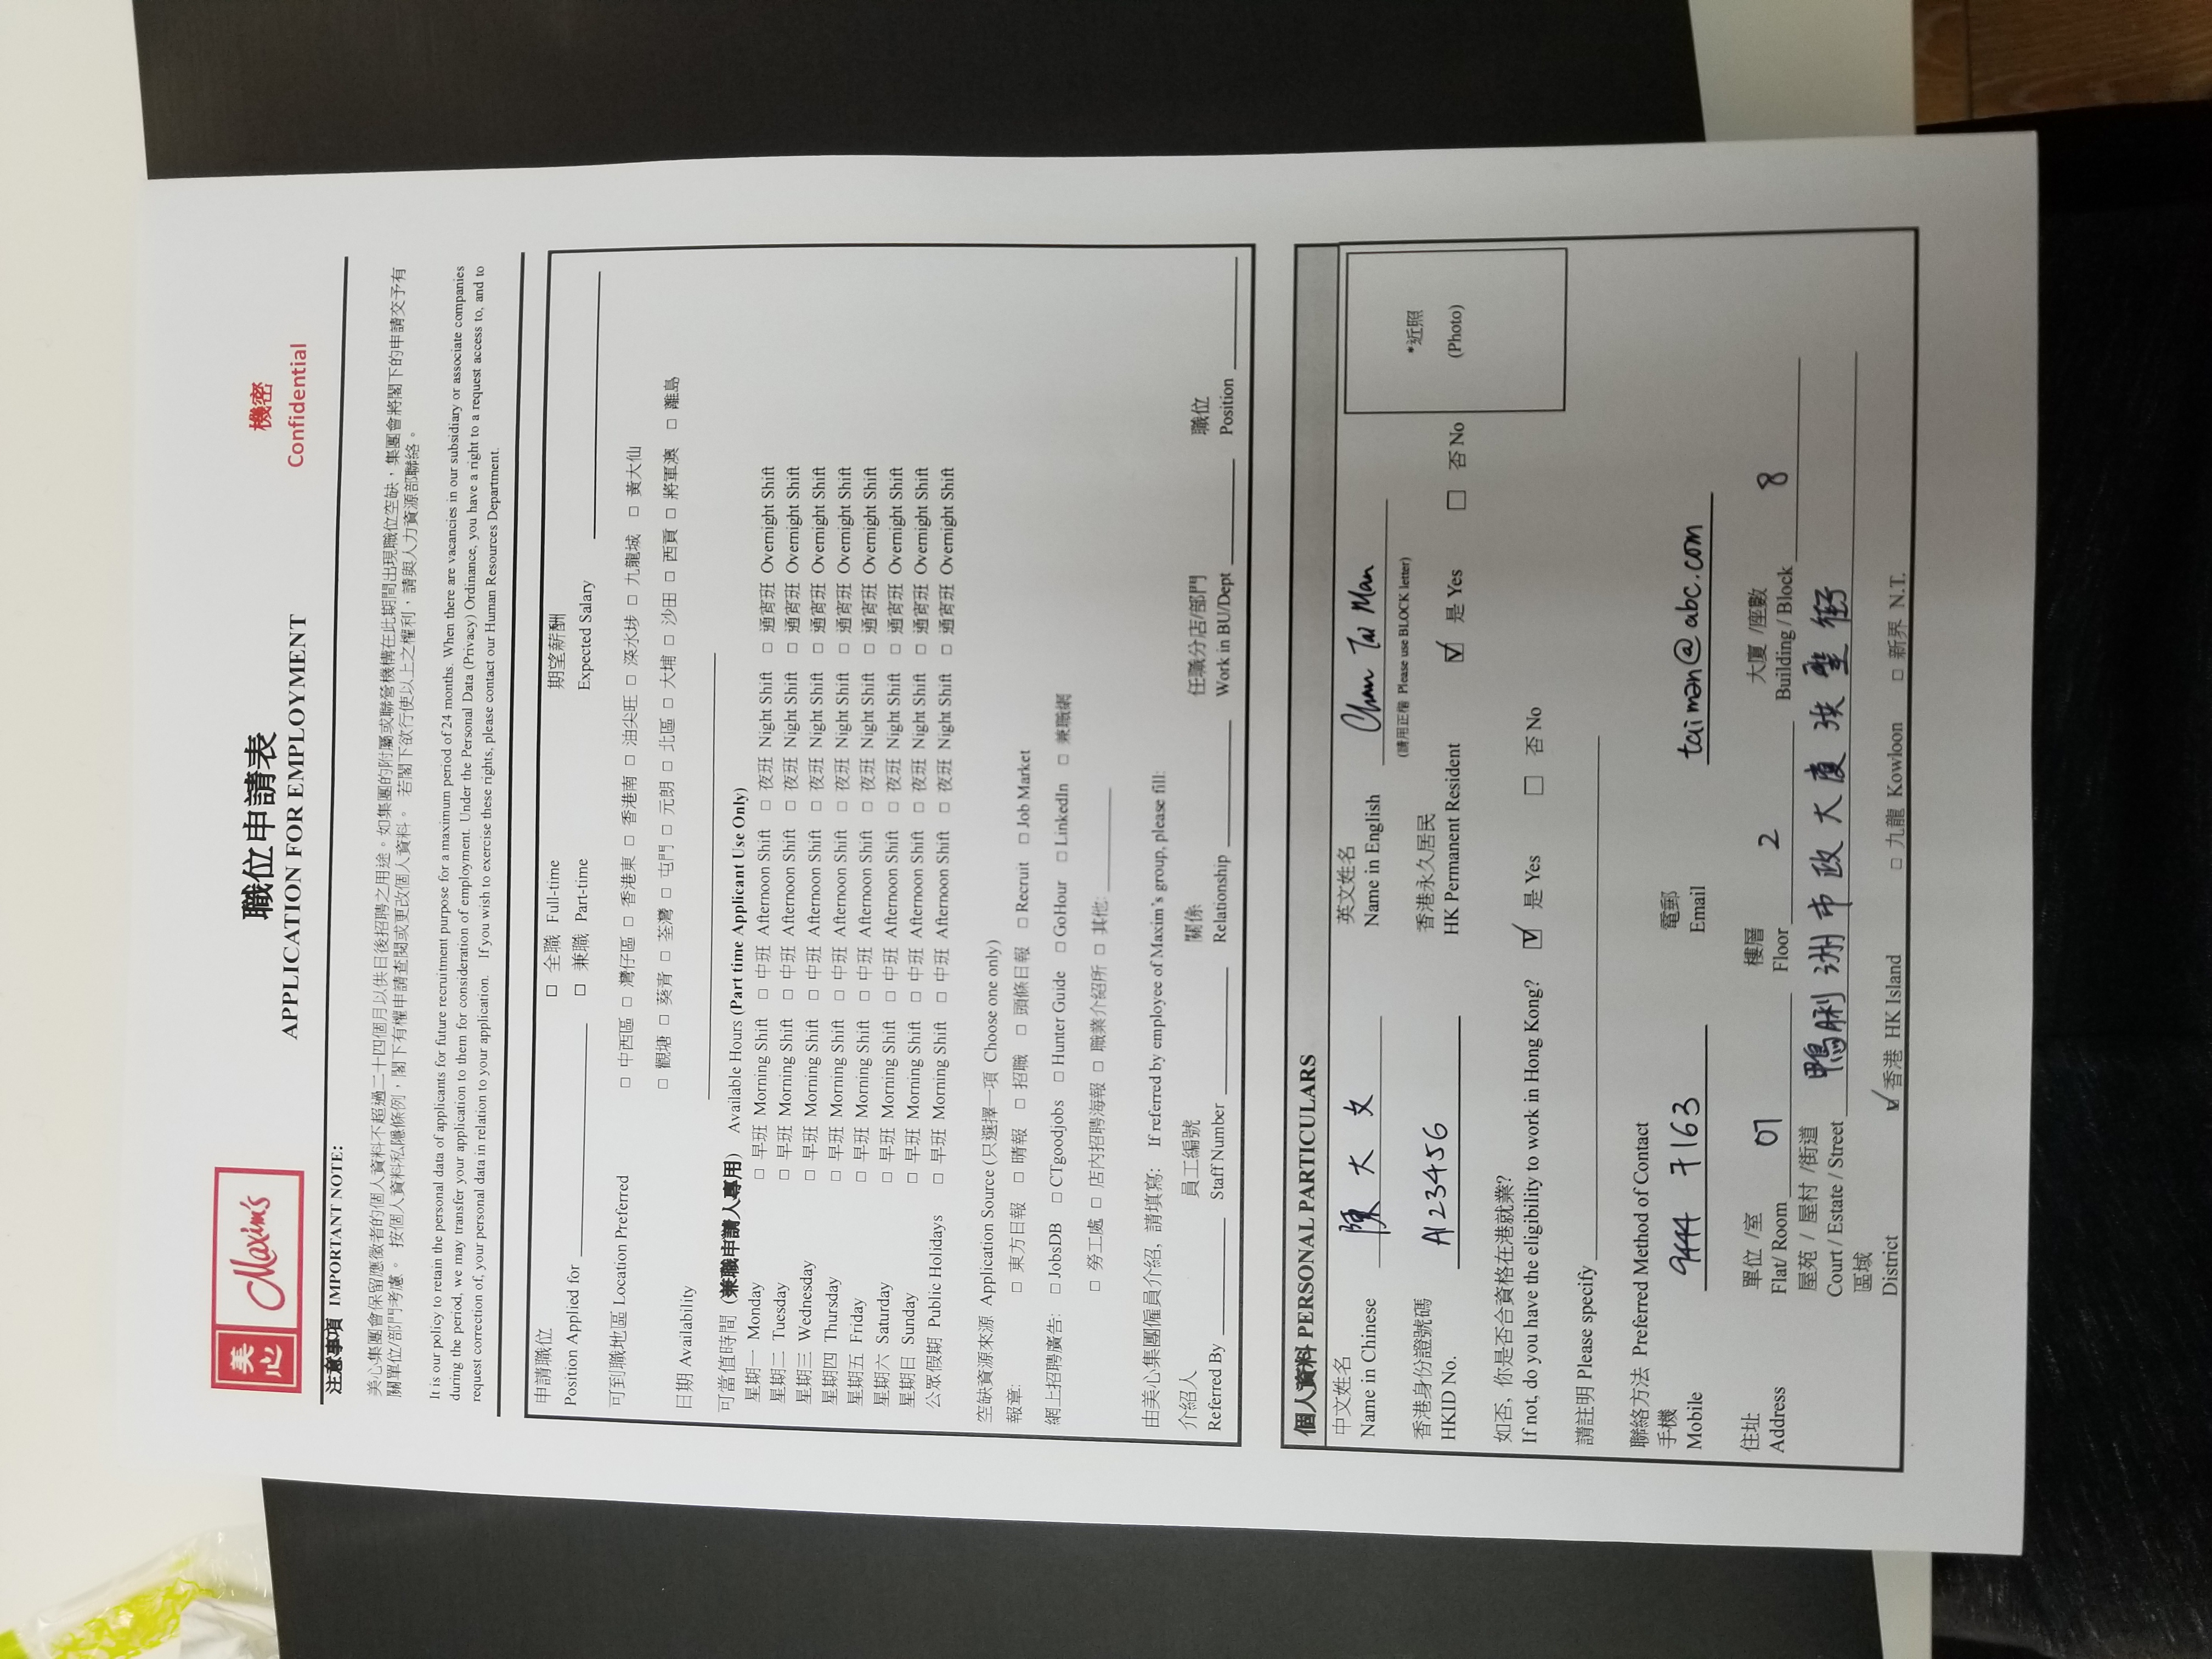 美心 Maxim's
職位申請表
APPLICATION FOR EMPLOYMENT
機密
Confidential
注意事項 IMPORTANT NOTE:
美心集團會保留應徵者的個人資料不超過二十四個月以供日後招聘之用途。如集團的附屬或聯營機構在此期間出現職位空缺，集團會將閣下的申請交予有
關單位/部門考慮。 按個人資料私隱條例，閣下有權申請查閱或更改個人資料。 若閣下欲行使以上之權利，請與人力資源部聯絡。
It is our policy to retain the personal data of applicants for future recruitment purpose for a maximum period of 24 months. When there are vacancies in our subsidiary or associate companies
during the period, we may transfer your application to them for consideration of employment. Under the Personal Data (Privacy) Ordinance, you have a right to a request access to, and to
request correction of, your personal data in relation to your application. If you wish to exercise these rights, please contact our Human Resources Department.
申請職位 □ 全職 Full-time 期望薪酬
Position Applied for □ 兼職 Part-time Expected Salary
可到職地區 Location Preferred □ 中西區 □ 灣仔區 □ 香港東 □ 香港南 □ 油尖旺 □ 深水埗 □ 九龍城 □ 黃大仙
□ 觀塘 □ 葵青 □ 荃灣 □ 屯門 □ 元朗 □ 北區 □ 大埔 □ 沙田 □ 西貢 □ 將軍澳 □ 離島
日期 Availability
可當值時間 (兼職申請人專用) Available Hours (Part time Applicant Use Only)
星期一 Monday □ 早班 Morning Shift □ 中班 Afternoon Shift □ 夜班 Night Shift □ 通宵班 Overnight Shift
星期二 Tuesday □ 早班 Morning Shift □ 中班 Afternoon Shift □ 夜班 Night Shift □ 通宵班 Overnight Shift
星期三 Wednesday □ 早班 Morning Shift □ 中班 Afternoon Shift □ 夜班 Night Shift □ 通宵班 Overnight Shift
星期四 Thursday □ 早班 Morning Shift □ 中班 Afternoon Shift □ 夜班 Night Shift □ 通宵班 Overnight Shift
星期五 Friday □ 早班 Morning Shift □ 中班 Afternoon Shift □ 夜班 Night Shift □ 通宵班 Overnight Shift
星期六 Saturday □ 早班 Morning Shift □ 中班 Afternoon Shift □ 夜班 Night Shift □ 通宵班 Overnight Shift
星期日 Sunday □ 早班 Morning Shift □ 中班 Afternoon Shift □ 夜班 Night Shift □ 通宵班 Overnight Shift
公眾假期 Public Holidays □ 早班 Morning Shift □ 中班 Afternoon Shift □ 夜班 Night Shift □ 通宵班 Overnight Shift
空缺資源來源 Application Source (只選擇一項 Choose one only)
報章: □ 東方日報 □ 晴報 □ 招職 □ 頭條日報 □ Recruit □ Job Market
網上招聘廣告: □ JobsDB □ CTgoodjobs □ Hunter Guide □ GoHour □ LinkedIn □ 兼職網
□ 勞工處 □ 店內招聘海報 □ 職業介紹所 □ 其他:
由美心集團僱員介紹, 請填寫: If referred by employee of Maxim's group, please fill:
介紹人 員工編號 關係 任職分店/部門 職位
Referred By Staff Number Relationship Work in BU/Dept Position
個人資料 PERSONAL PARTICULARS
中文姓名 英文姓名
Name in Chinese 陳大文 Name in English Chan Tai Man
(請用正楷 Please use BLOCK letter)
*近照
(Photo)
香港身份證號碼 香港永久居民
HKID No. A123456 HK Permanent Resident ☑ 是 Yes □ 否 No
如否, 你是否合資格在港就業?
If not, do you have the eligibility to work in Hong Kong? ☑ 是 Yes □ 否 No
請註明 Please specify
聯絡方法 Preferred Method of Contact
手機 電郵
Mobile 9444 7163 Email taiman@abc.com
住址 單位 /室 樓層 大廈 /座數
Address Flat/ Room 07 Floor 2 Building / Block 8
屋苑 / 屋村 /街道
Court / Estate / Street 鴨脷洲市政大廈洪聖街
區域
District ☑ 香港 HK Island □ 九龍 Kowloon □ 新界 N.T.